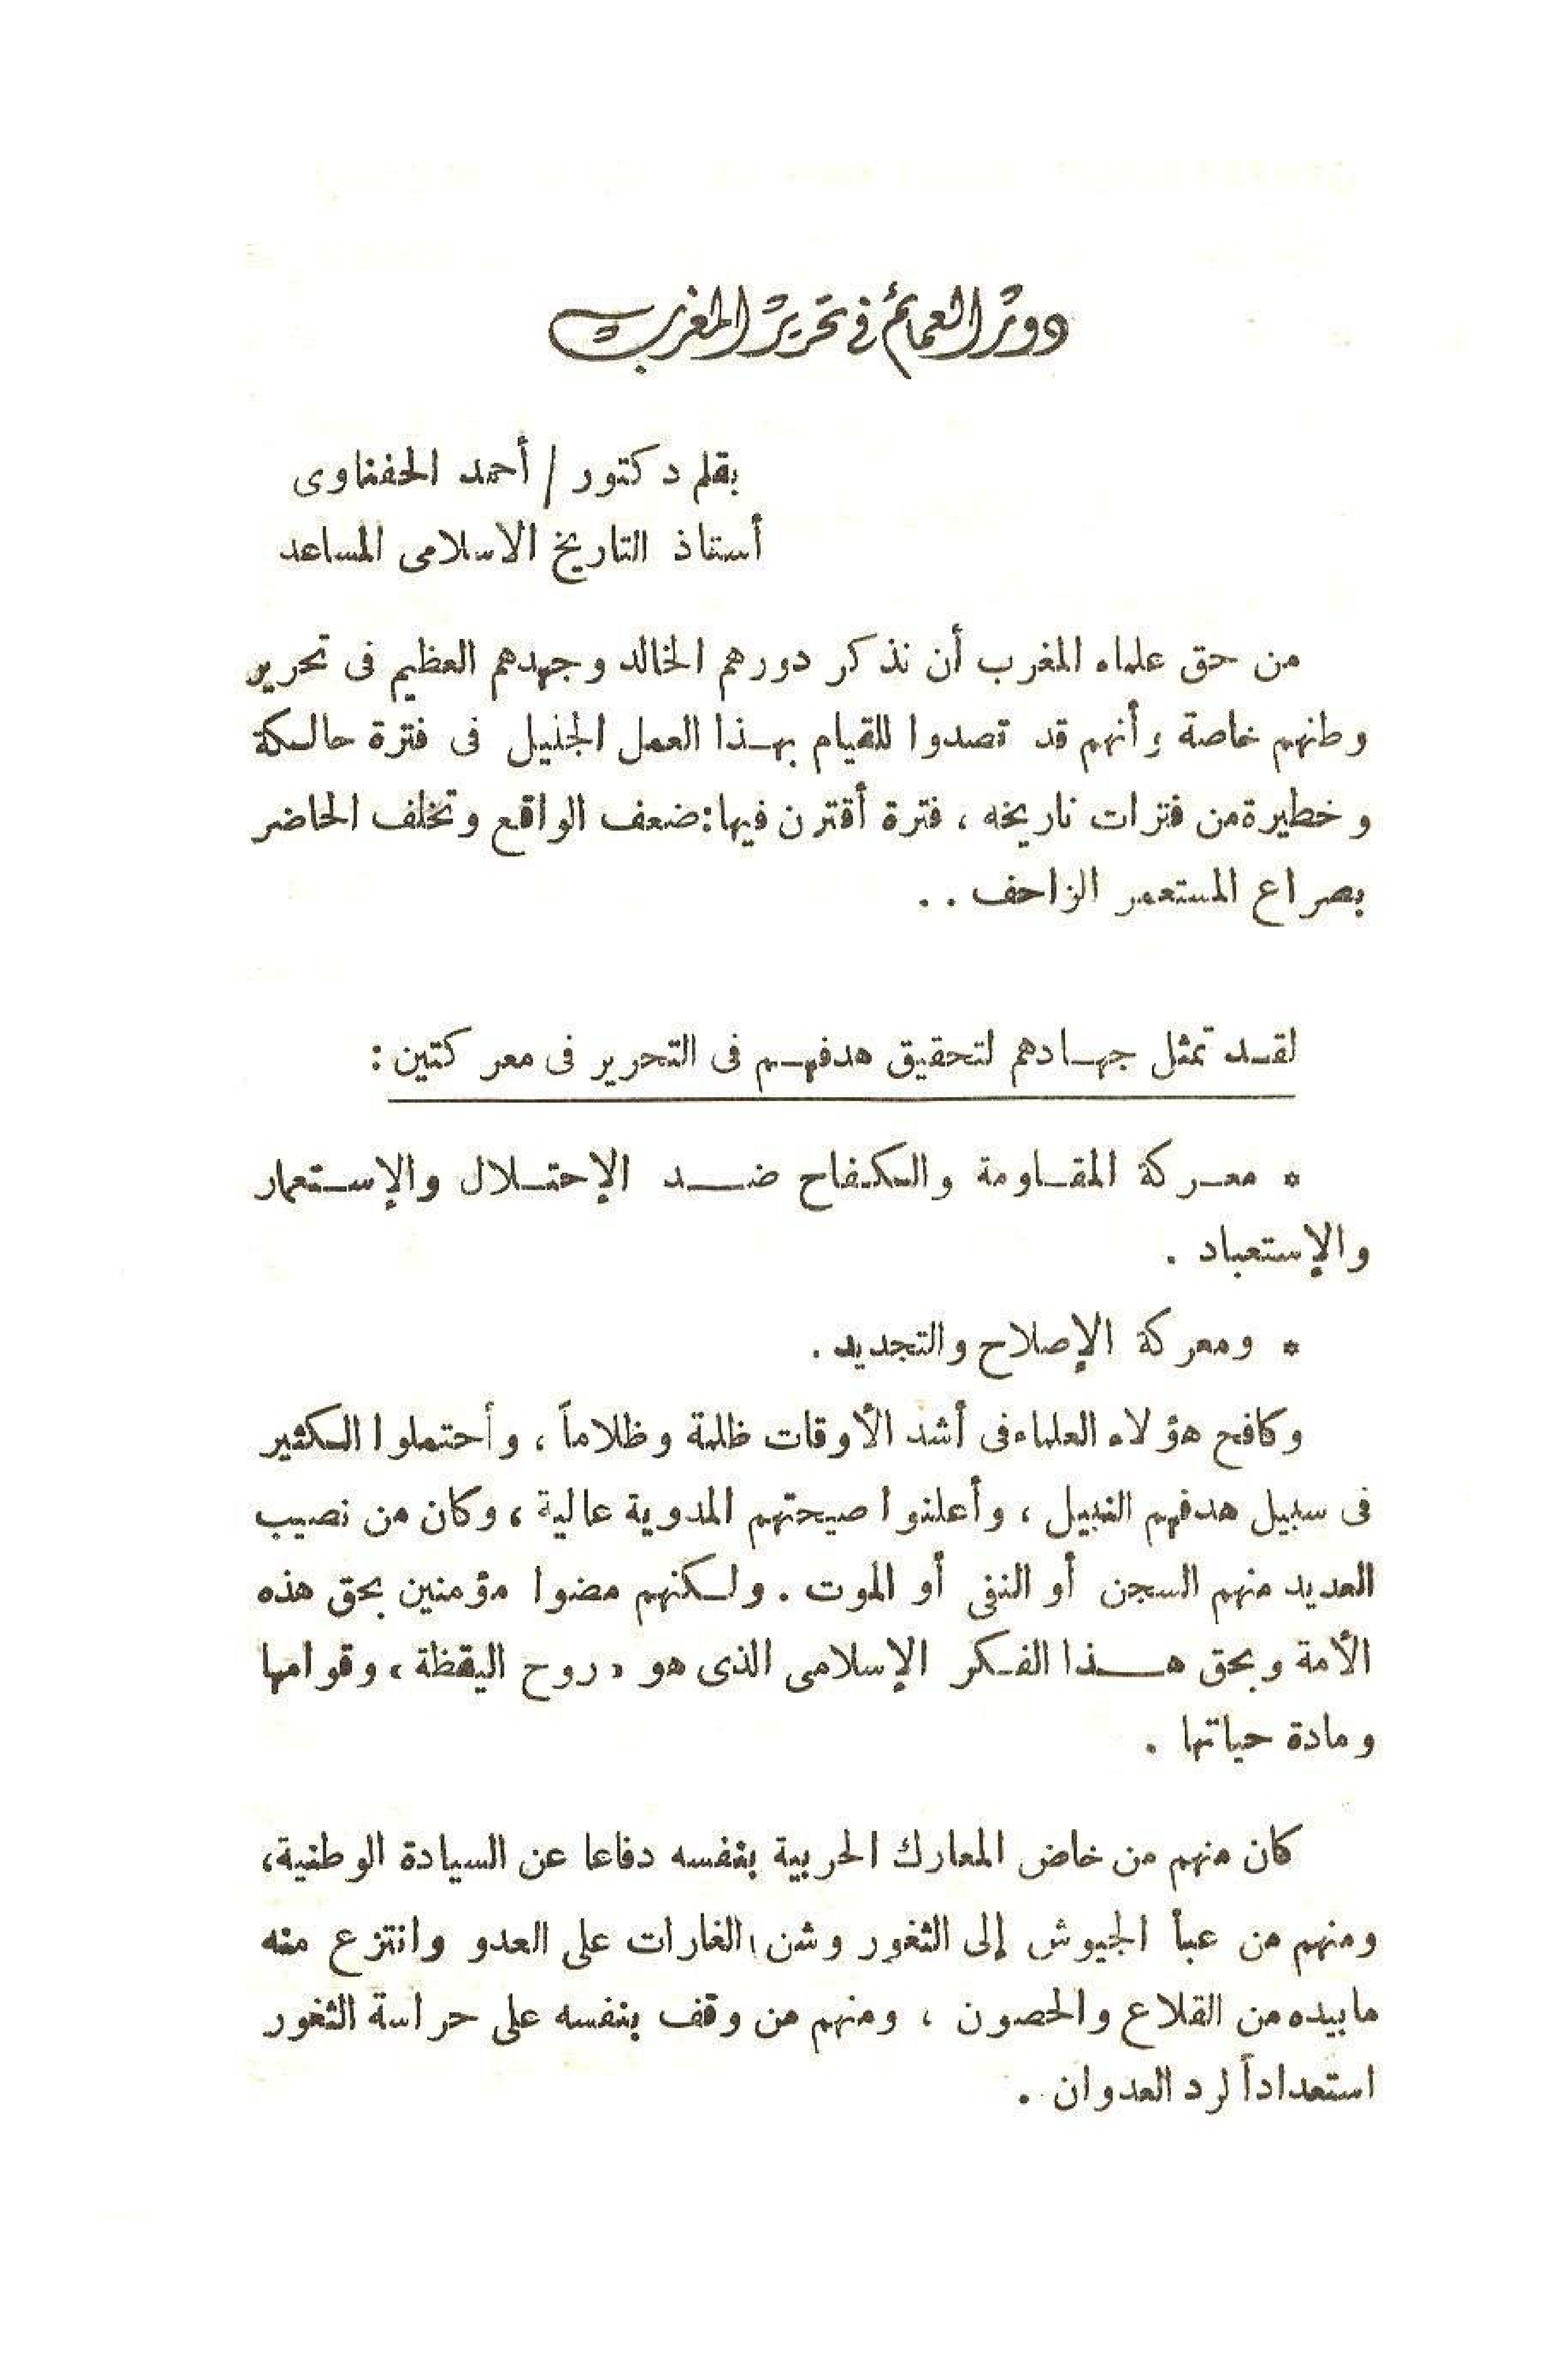 دور العمائم في تحرير المغرب
بقلم دكتور / أحمد الحفناوى
أستاذ التاريخ الاسلامى المساعد
من حق علماء المغرب أن نذكر دورهم الخالد وجهدهم العظيم فى تحرير
وطنهم خاصة وأنهم قد تصدوا للقيام بهذا العمل الجليل فى فترة حالكة
وخطيرة من فترات تاريخه ، فترة أقترن فيها : ضعف الواقع وتخلف الحاضر
بصراع المستعمر الزاحف . .
لقد تمثل جهادهم لتحقيق هدفهم فى التحرير فى معركتين :
* معركة المقاومة والكفاح ضد الإحتلال والإستعمار
والإستعباد .
* ومعركة الإصلاح والتجديد .
وكافح هؤلاء العلماء فى أشد الأوقات ظلمة وظلاماً ، وأحتملوا الكثير
فى سبيل هدفهم النبيل ، وأعلنوا صيحتهم المدوية عالية ، وكان من نصيب
العديد منهم السجن أو النفى أو الموت . ولكنهم مضوا مؤمنين بحق هذه
الأمة وبحق هذا الفكر الإسلامى الذى هو « روح اليقظة » وقوامها
ومادة حياتها .
كان منهم من خاض المعارك الحربية بنفسه دفاعا عن السيادة الوطنية ،
ومنهم من عبأ الجيوش إلى الثغور وشن الغارات على العدو وانتزع منه
مابيده من القلاع والحصون ، ومنهم من وقف بنفسه على حراسة الثغور
استعداداً لرد العدوان .